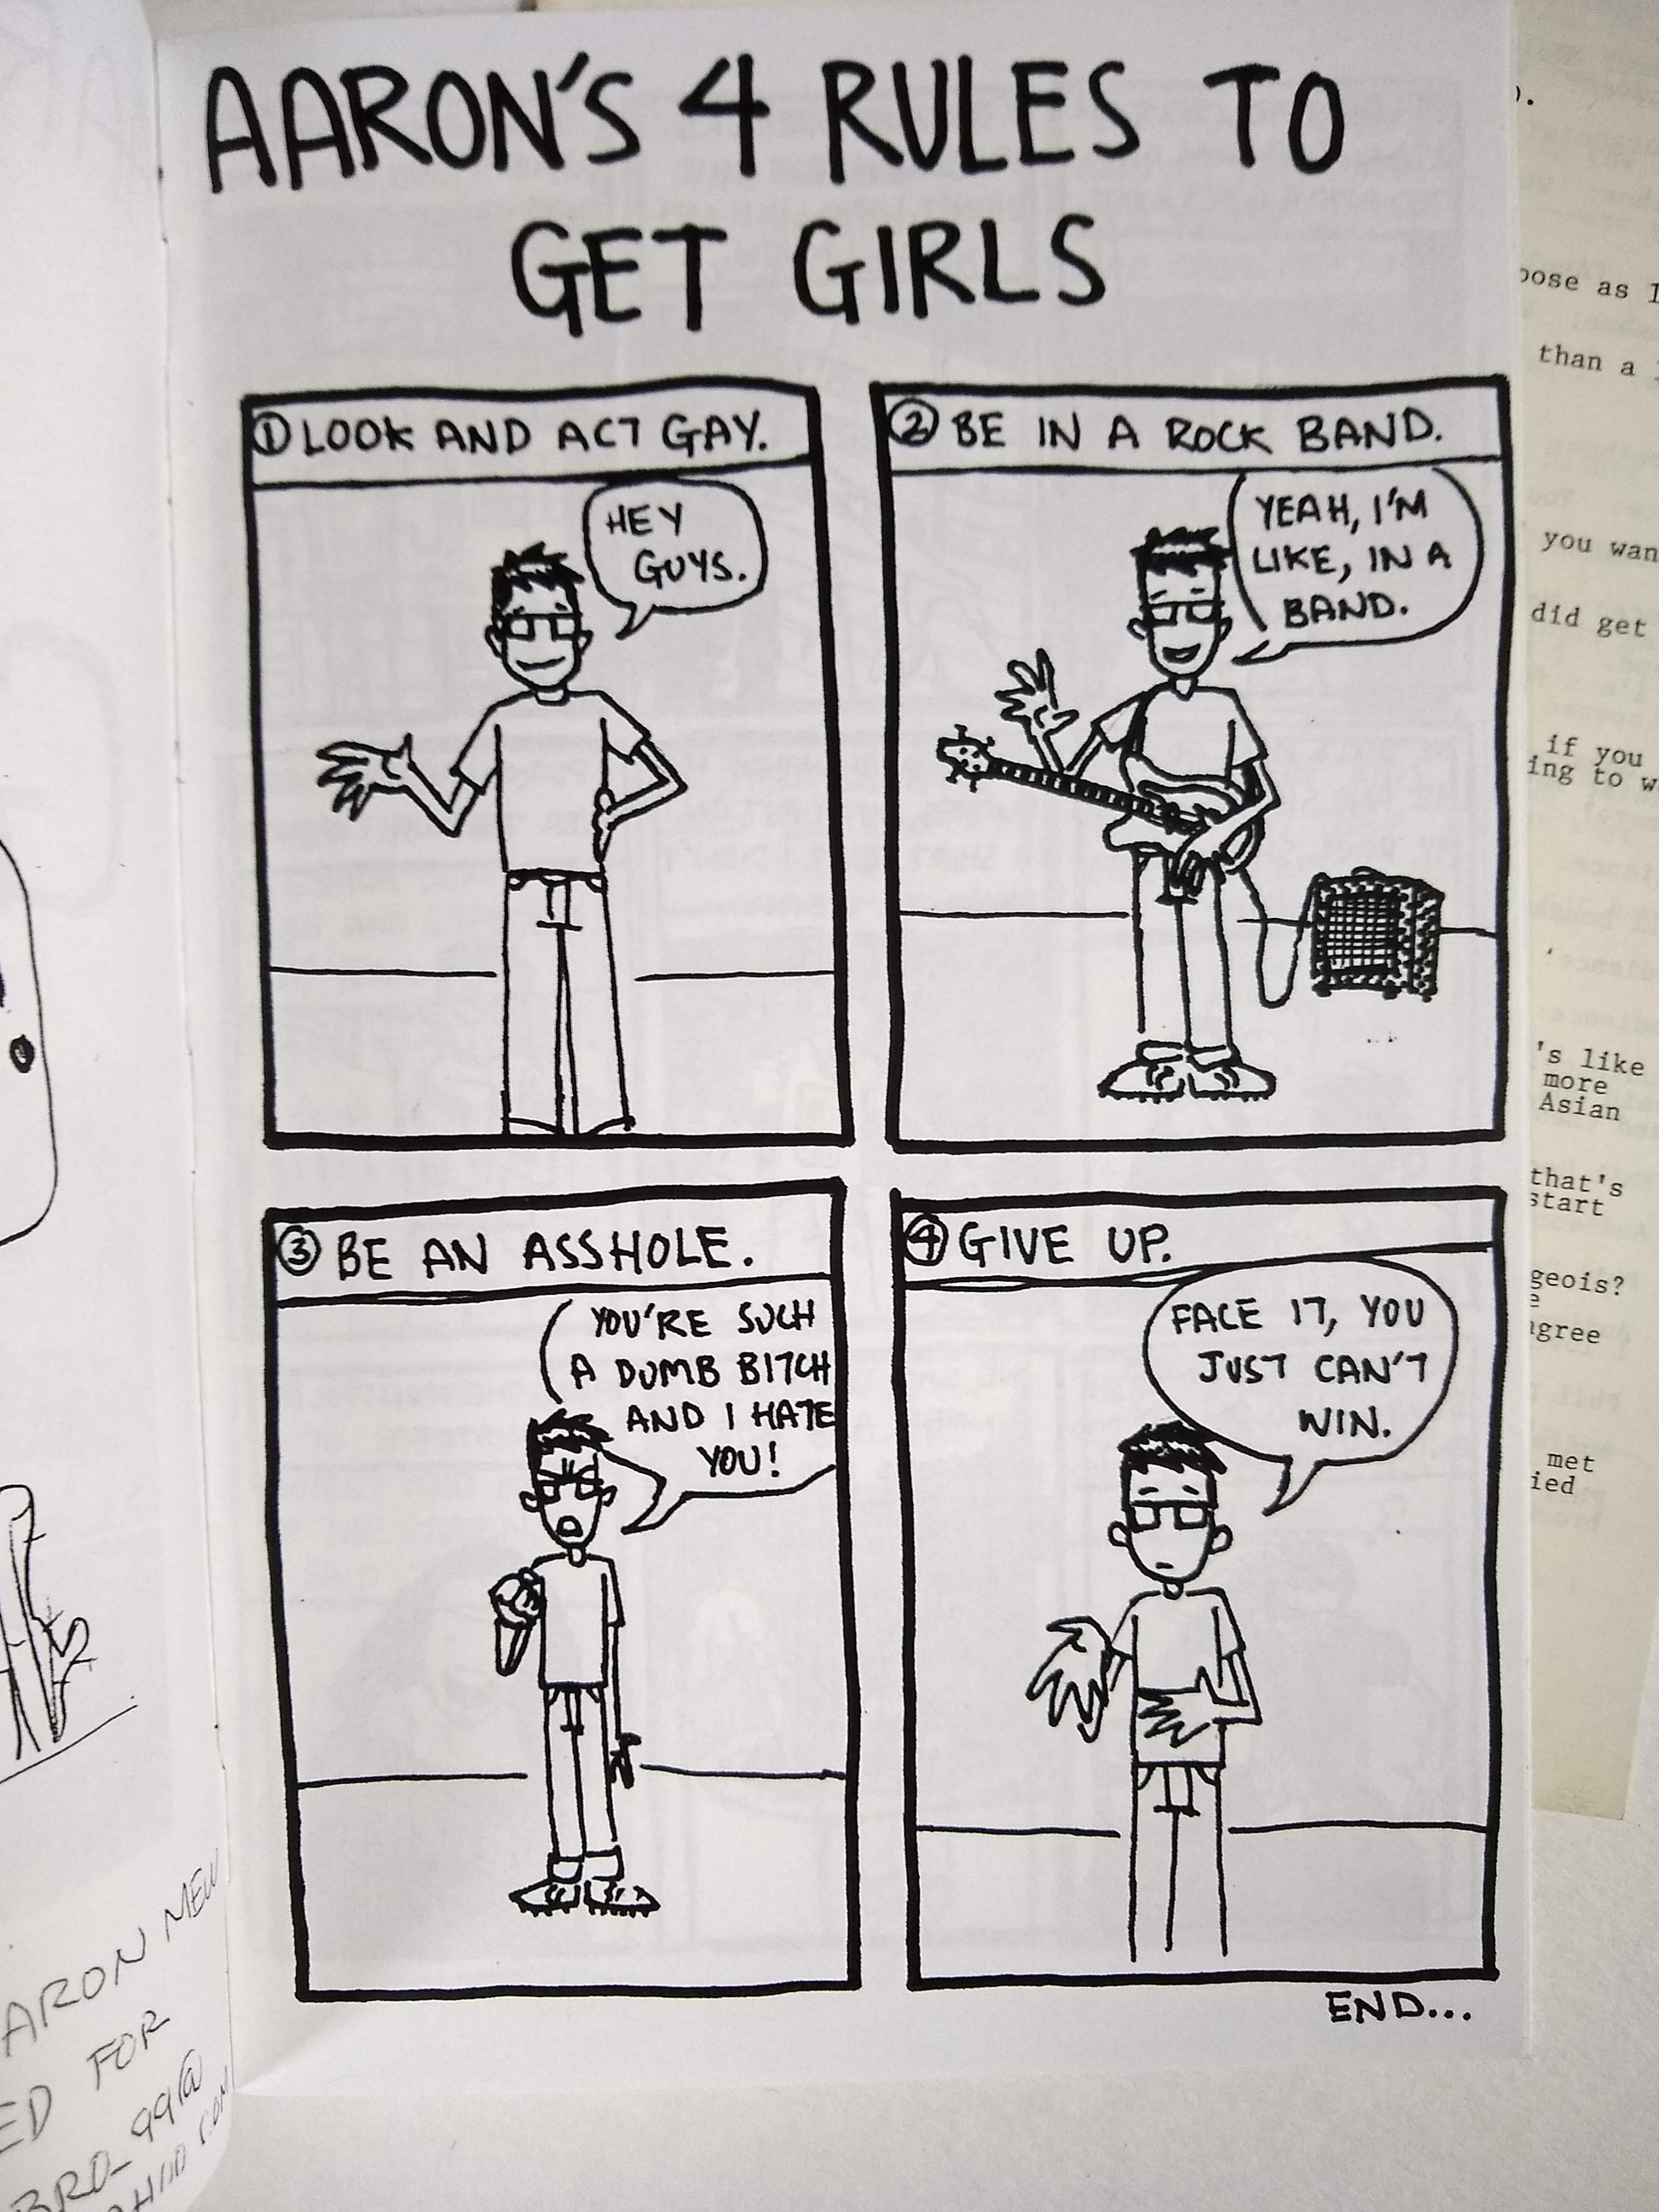 AARON'S 4 RULES TO
GET GIRLS
① LOOK AND ACT GAY.
HEY
GUYS.
② BE IN A ROCK BAND.
YEAH, I'M
LIKE, IN A
BAND.
③ BE AN ASSHOLE.
YOU'RE SUCH
A DUMB BITCH
AND I HATE
YOU!
④ GIVE UP.
FACE IT, YOU
JUST CAN'T
WIN.
END...
ARON MEW
ED FOR
BRO_99@
as
than a
you wan
did get
if you
ing to
's like
more
Asian
that's
start
geois?
gree
met
ied